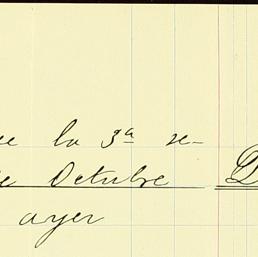 la 3ª se-
de Octubre
ayer